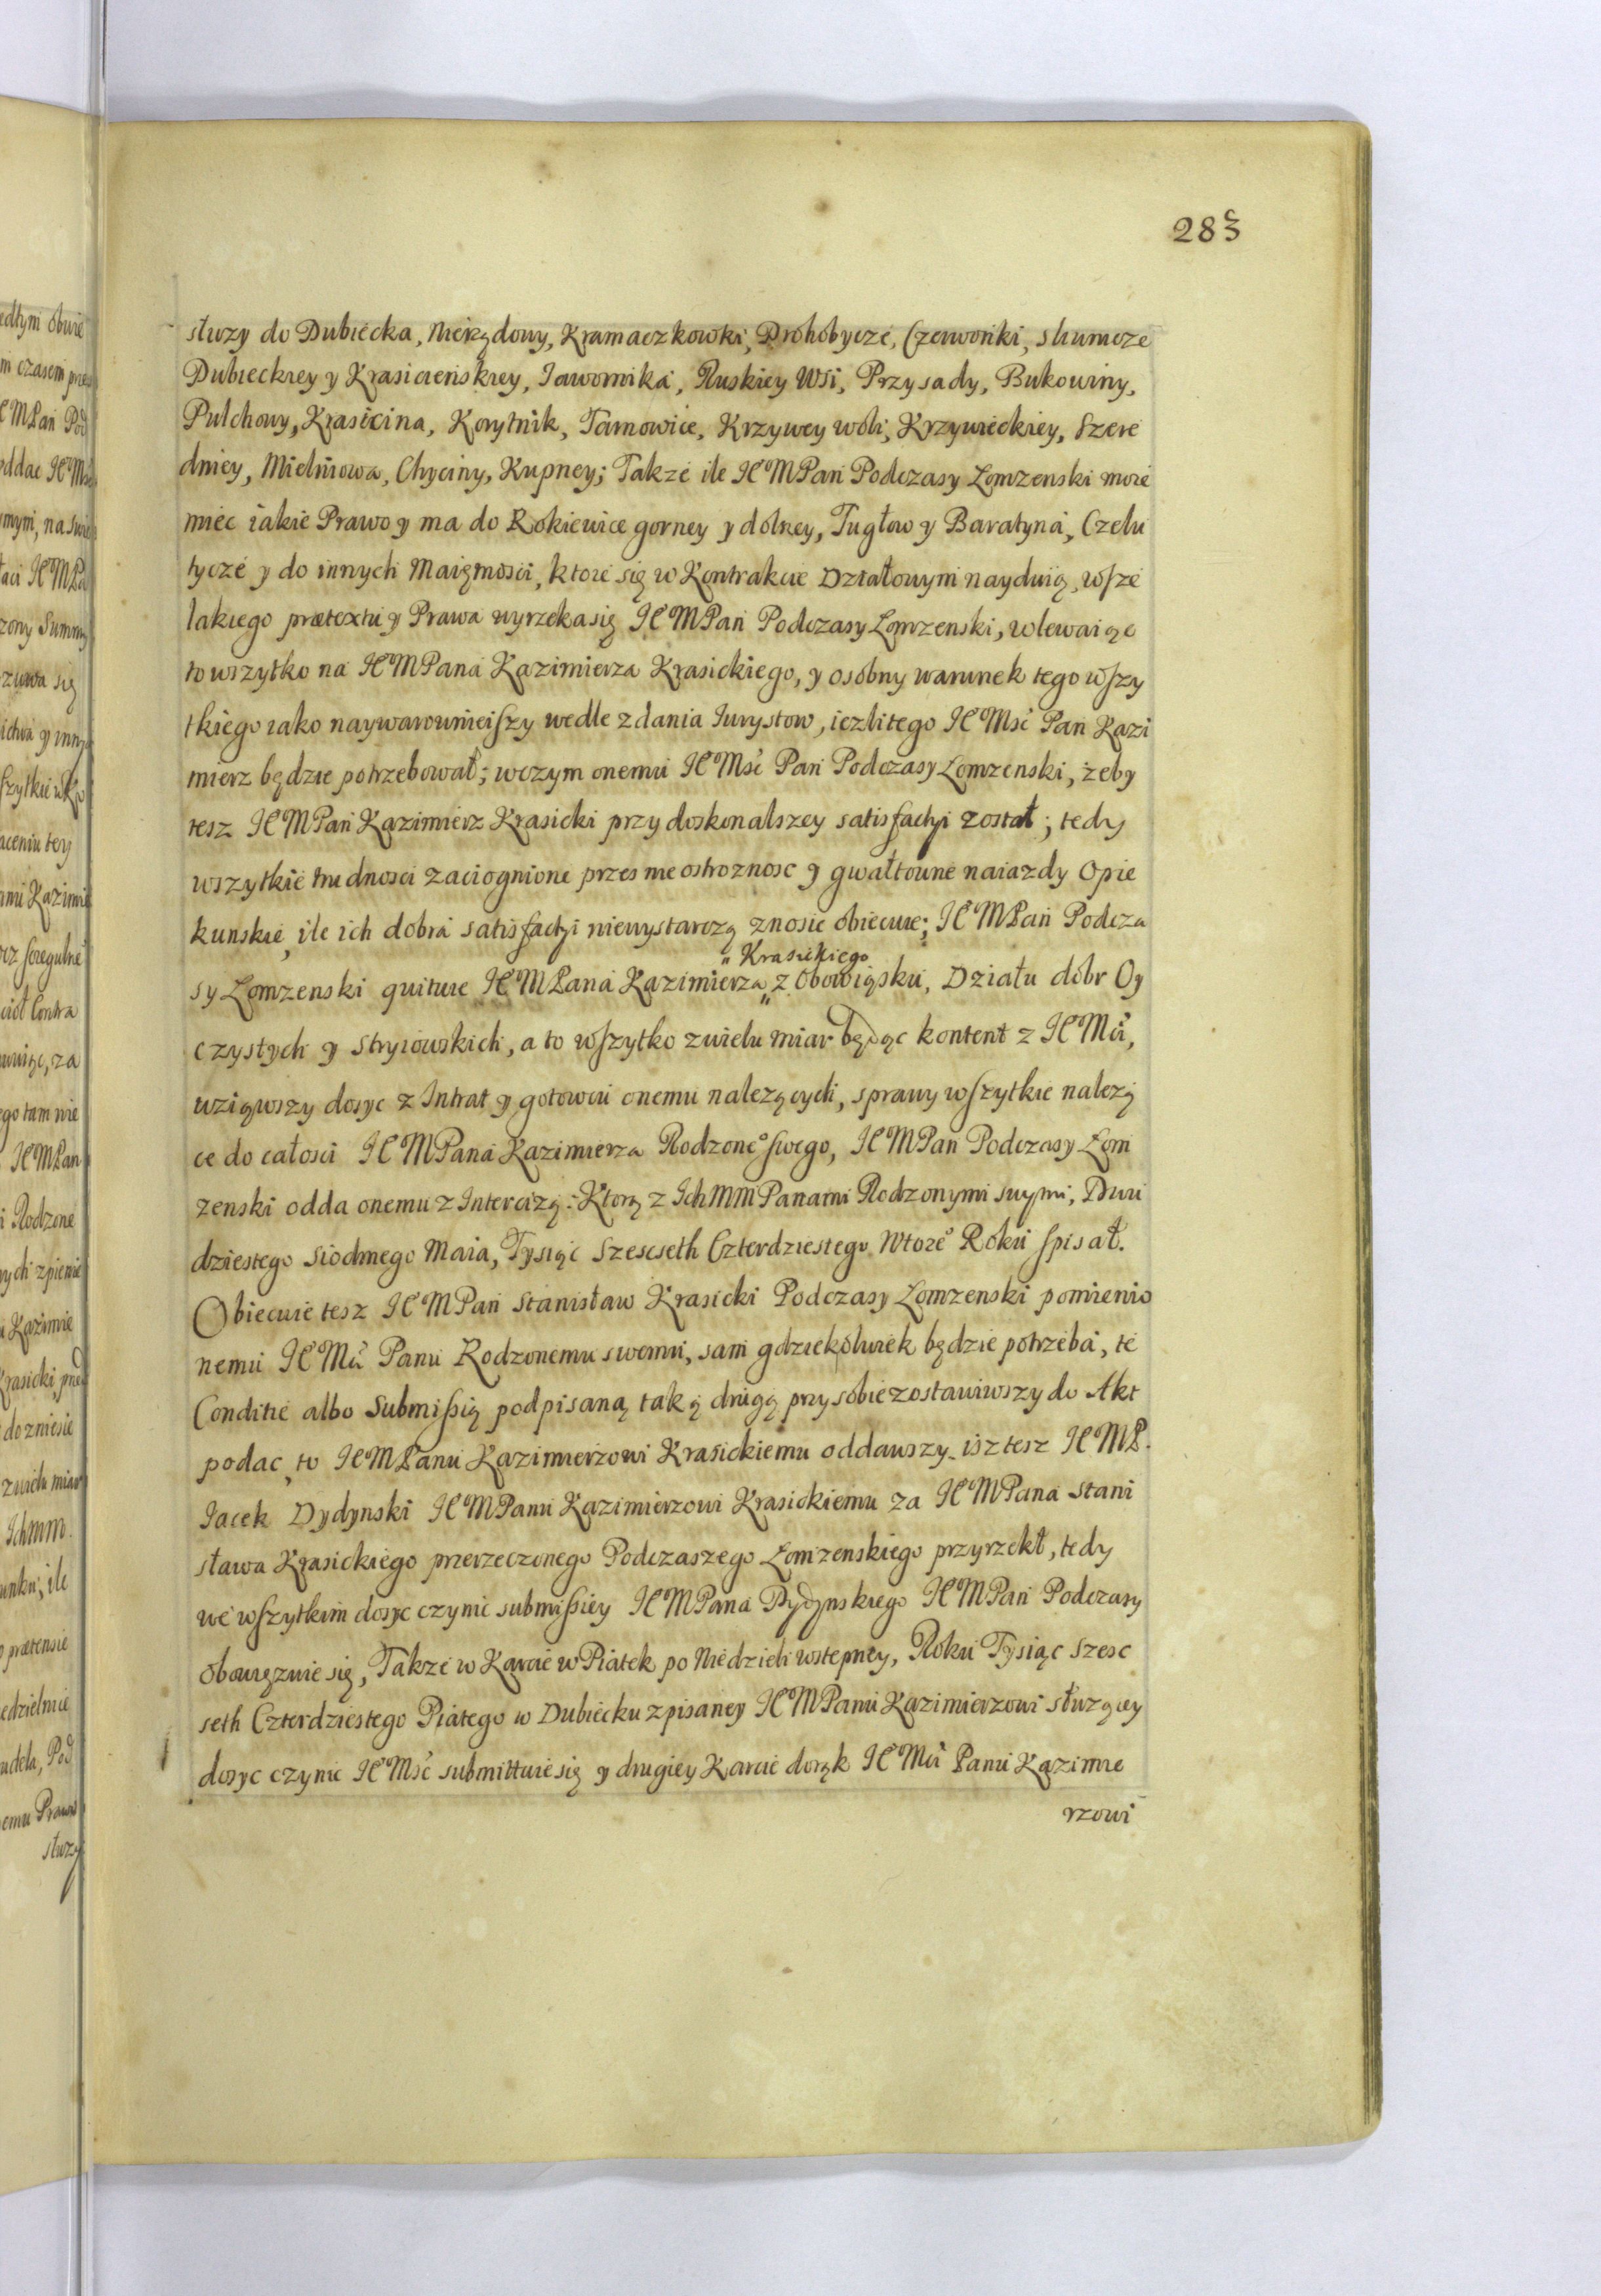 283
słuzy do Dubiecka, Niekądowy, Kramaczkowki, Drohobycze, Czerwonki, slumcze
Dubieckiey y Krasiczeńskiey, Jawornika, Ruskiey Wsi, Przysady, Bukowiny,
Pulchowy, Krasicina, Korytnik, Tarnowice, Krzywey woli, Krzywieckiey, Szere
dniey, Mielniowa, Chyciny, Kupney; Takze ile JE͠MPan Podczasy Łomzenski moze
miec iakie Prawo y ma do Rokiewice gorney y dolney, Tugłow y Baratyna, Czelu
tycze y do innych Maiętnosci, ktore się w Kontrakcie Działowym nayduią, wsze
lakiego prætextu y Prawa wyrzeka się JE͠MPan Podczasy Łomzenski, wlewaiąc
to wszytko na JE͠MPana Kazimierza Krasickiego, y osobny warunek tego wszy
tkiego iako naywarownieiszy wedle zdania Jurystow, iezli tego JE͠Msc Pan Kazi
mierz będzie potrzebował; w czym onemu JE͠Msc Pan Podczasy Łomzenski, żeby
tesz JE͠MPan Kazimierz Krasicki przy doskonalszey satisfactyi został; tedy
wszytkie trudnosci zaciognione przes nieostroznosc y gwałtowne naiazdy Opie
kunskie, ile ich dobra satisfactyi niewystarczą znosic obiecuie; JE͠MPan Podcza
sy Łomzenski quituie JE͠MPana Kazimierza „ Krasickiego „ z Obowiąsku, Działu dobr Oy
czystych y stryiowskich, a to wszytko zwielu miar będąc kontent z JE͠Mci,
wziąwszy dosyc z Intrat y gotowci onemu nalezących, sprawy wszytkie nalezą
ce do całosci JE͠MPana Kazimierza Rodzoneo swego, JE͠MPan Podczasy Łom
zenski odda onemu z Intercizą: Ktorą z Ich MM Panami Rodzonymi swymi, Dwu
dziestego siodmego Maia, Tysiąc szescseth Czterdziestego Wtoreo Roku spisał.
Obiecuie tesz JE͠MPan Stanisław Krasicki Podczasy Łomzenski pomienio
nemu JE͠Mci Panu Rodzonemu swemu, sam gdziekolwiek będzie potrzeba, te
Conditie albo Submissią podpisaną taką drugą przy sobie zostawiwszy do Akt
podac, to JE͠MPanu Kazimierzowi Krasickiemu oddawszy. isz tesz JE͠MP.
Jacek Dydynski JE͠MPanu Kazimierzowi Krasickiemu za JE͠MPana Stani
sława Krasickiego przerzeczonego Podczaszego Łomzenskiego przyrzekł, tedy
we wszytkim dosyc czynic submissiey JE͠MPana Dydynskiego JE͠MPan Podczasy
obowięzuie się, Takze w Karcie w Piatek po Niedzieli wstepney, Roku Tysiąc szesc
seth Czterdziestego Piatego w Dubiecku zpisaney JE͠MPanu Kazimierzowi słuzącey
dosyc czynic JE͠Msc submittuie się y drugiey Karcie do rąk JE͠Mci Panu Kazimie
rzowi